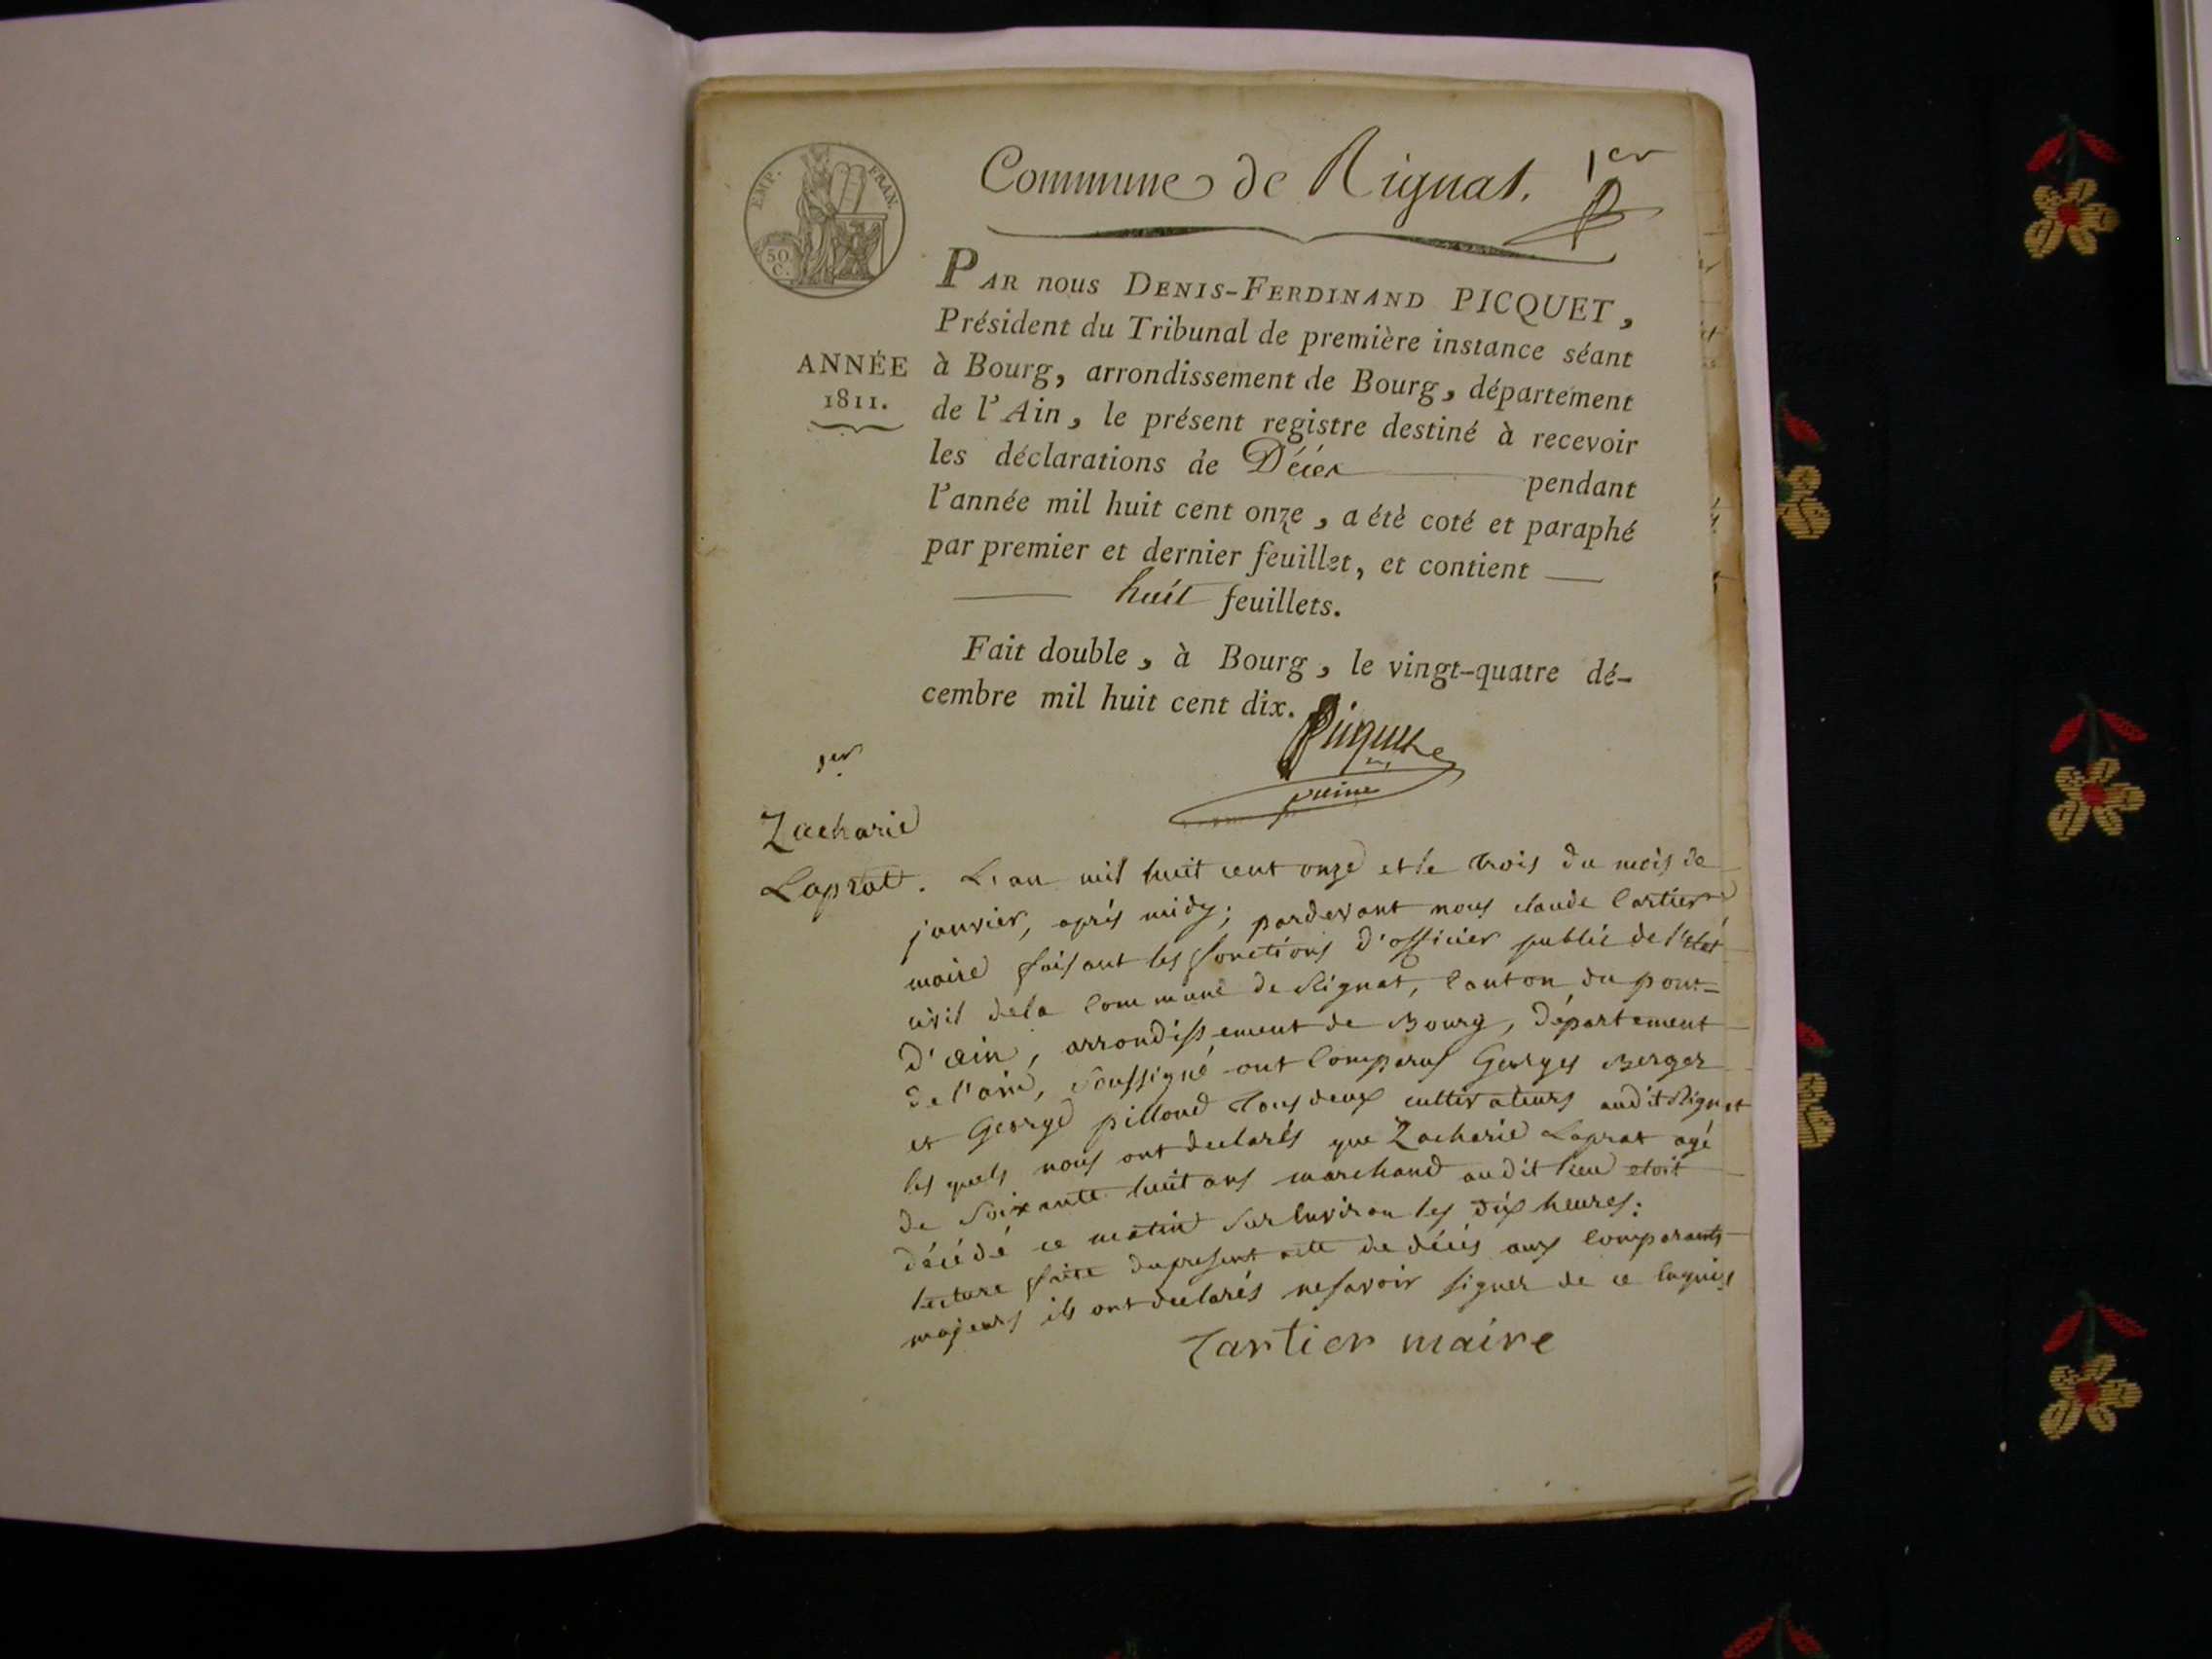 EMP. FRAN.
50 C.
Commune de Rignat. 1er
PAR nous DENIS-FERDINAND PICQUET,
Président du Tribunal de première instance séant
ANNÉE à Bourg, arrondissement de Bourg, département
1811. de l'Ain, le présent registre destiné à recevoir
les déclarations de Décès pendant
l'année mil huit cent onze, a été coté et paraphé
par premier et dernier feuillet, et contient
huit feuillets.
Fait double, à Bourg, le vingt-quatre dé-
cembre mil huit cent dix.
Picquet
1er
Zacharie
Laprat. L'an mil huit cent onze et le trois du mois de
janvier, après midy; pardevant nous claude Cartier
maire faisant les fonctions d'officier public de l'état
civil dela Commune de Rignat, Canton du pont=
d'ain, arrondissement de Bourg, département
de l'ain, Soussigné ont Comparus Georges Berger
et George pilloud Tous deux cultivateurs audit Rignat
les quels nous ont declarés que Zacharie Laprat agé
de Soixante huit ans marchand audit lieu etoit
décédé ce matin Sur Environ les dix heures:
lecture faite du present acte de décés aux Comparants
majeurs ils ont declarés ne savoir signer de ce Enquis
Cartier maire